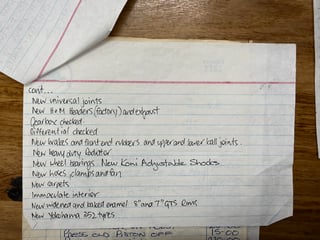 cont...
New universal joints
New H+M Headers (factory) and exhaust
Gearbox checked
Differential checked
New brakes and front end rubbers and upper and lower ball joints.
New heavy duty radiator
New wheel bearings. New Koni Adjustable Shocks
New hoses, clamps and fan
New carpets
Immaculate interior
New widened and baked enamel 8" and 7" GTS Rims
New Yokohama 352 tyres
PRESS OLD PISTON OFF 15-00